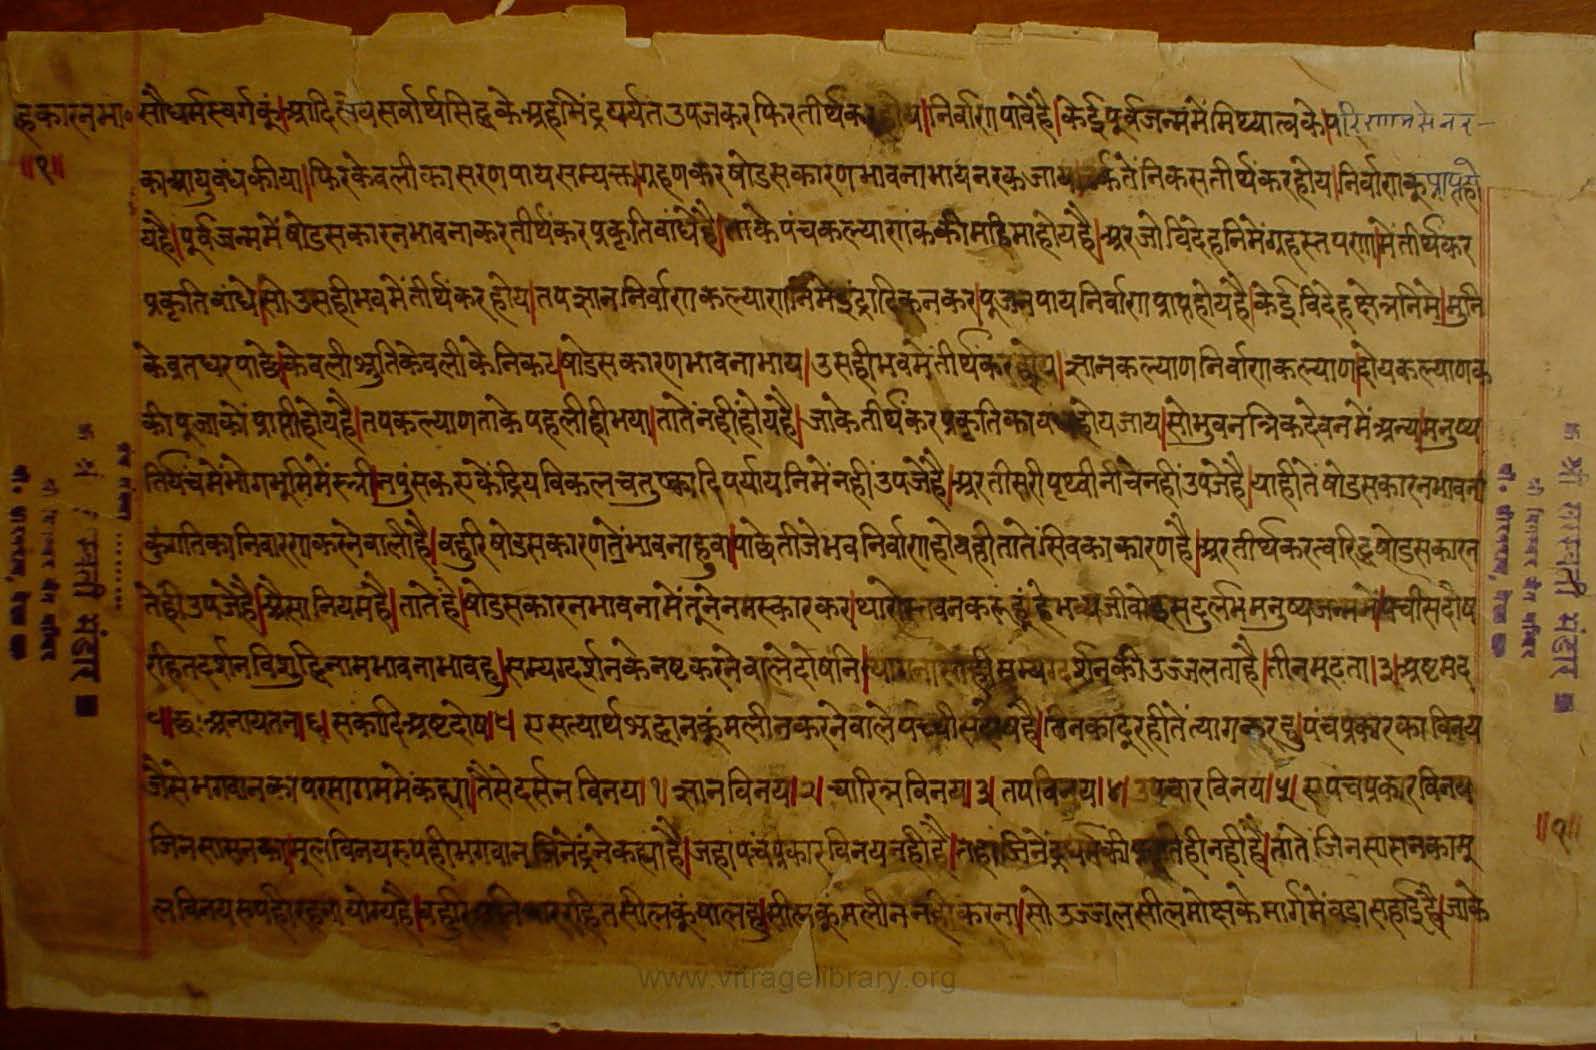 सौधर्मस्वर्गकूं।आदिलेयसर्वार्थसिद्धकेअहमिंद्रपर्यंतउपजकरफिरतीर्थंकर होय।निर्वाणपावेहै।केईपूर्वजन्ममेंमिथ्यात्वके।परिणामसेनर-
॥१॥
काआयुबंधकीया।फिरकेवलीकासरणपायसम्यक्तग्रहणकरषोडसकारणभावनाभायनरकजाय।नर्कतेंनिकसतीर्थंकरहोय।निर्वाणकूप्राप्तहो
यहै।पूर्वजन्ममेंषोडसकारनभावनाकरतीर्थंकरप्रकृतिबांधेहै।ताकेपंचकल्याणककीमहिमाहोयहै।अरजोविदेहनिमेंग्रहस्तपणामेंतीर्थंकर
प्रकृतिबांधे।सोउसहीभवमेंतीर्थंकरहोय।तपज्ञाननिर्वाणकल्याणनिमेइंद्रादिकनकर।पूजनपायनिर्वाणप्राप्तहोयहै।केईविदेहक्षेत्रनिमे।मुनि
केव्रतधरपाछे।केवलीश्रुतिकेवलीकेनिकट।षोडसकारणभावनाभाय।उसहीभवमेंतीर्थंकरहोय।ज्ञानकल्याणनिर्वाणकल्याण।होयकल्याणक
कीपूजाकोंप्राप्तीहोयहै।तपकल्याणताकेपहलीहीभया।तातेंनहींहोयहै।जाकेतीर्थंकरप्रकृतिका होयजाय।सोभुवनत्रिकदेवनमेंअन्य।मनुष्य
तिर्यंचमेंभोगभूमिमेंस्त्रीनपुंसकएकेंद्रियविकलचतुष्कादिपर्यायनिमेंनहींउपजेहै।अरतीसरीपृथ्वीनीचेनहींउपजेहै।याहीतेंषोडसकारनभावना
कुगतिकानिवारणकरनेवालीहै।बहुरिषोडसकारणभावनाहुवा।पाछेतीजेभवनिर्वाणहोयहीतातेंसिवकाकारणहै।अरतीर्थंकरत्वरिद्धषोडसकारन
तेहीउपजेहै।ऐसानियमहै।तातेहे।षोडसकारनभावनामेंतूनेनमस्कारकर।थारोस्तवनकरूहूं।हेभव्यजीवोइसदुर्लभमनुष्यजन्ममे।पचीसदोष
रहितदर्शनविशुद्धिनामभावनाभावहु।सम्यग्दर्शनकेनष्टकरनेवालेदोषनि। सम्यग्दर्शनकीउज्जलताहै।तीनमूढता।३।अष्टमद
।८।छःअनायतन।६।संकादिअष्टदोष।८।एसत्यार्थश्रद्धानकूंमलीनकरनेवालेपच्चीसदोषहै।तिनकादूरहीतेंत्यागकरहु।पंचप्रकारकाविनय
जैसेभगवानकापरमागममेंकह्या।तैसेदर्सनविनय।१।ज्ञानविनय।२।चारित्रविनय।३।तपविनय।४।उपचारविनय।५।एपंचप्रकारविनय
जिनसासनका।मूलविनयरुपहीभगवानजिनेंद्रनेकह्याहै।जहापंचप्रकारविनयनहीहै।तहाजिनेंद्रधर्मकी हीनहीहै।तातेंजिनसासनकामू
॥१॥
लविनयरुपहीरहनायोग्यहै।बहुरि रहितसीलकूंपालहु।सीलकूंमलीननहीकरना।सोउज्जलसीलमोक्षकेमार्गमेंबडासहाईहै।जाके
www.vitragelibrary.org